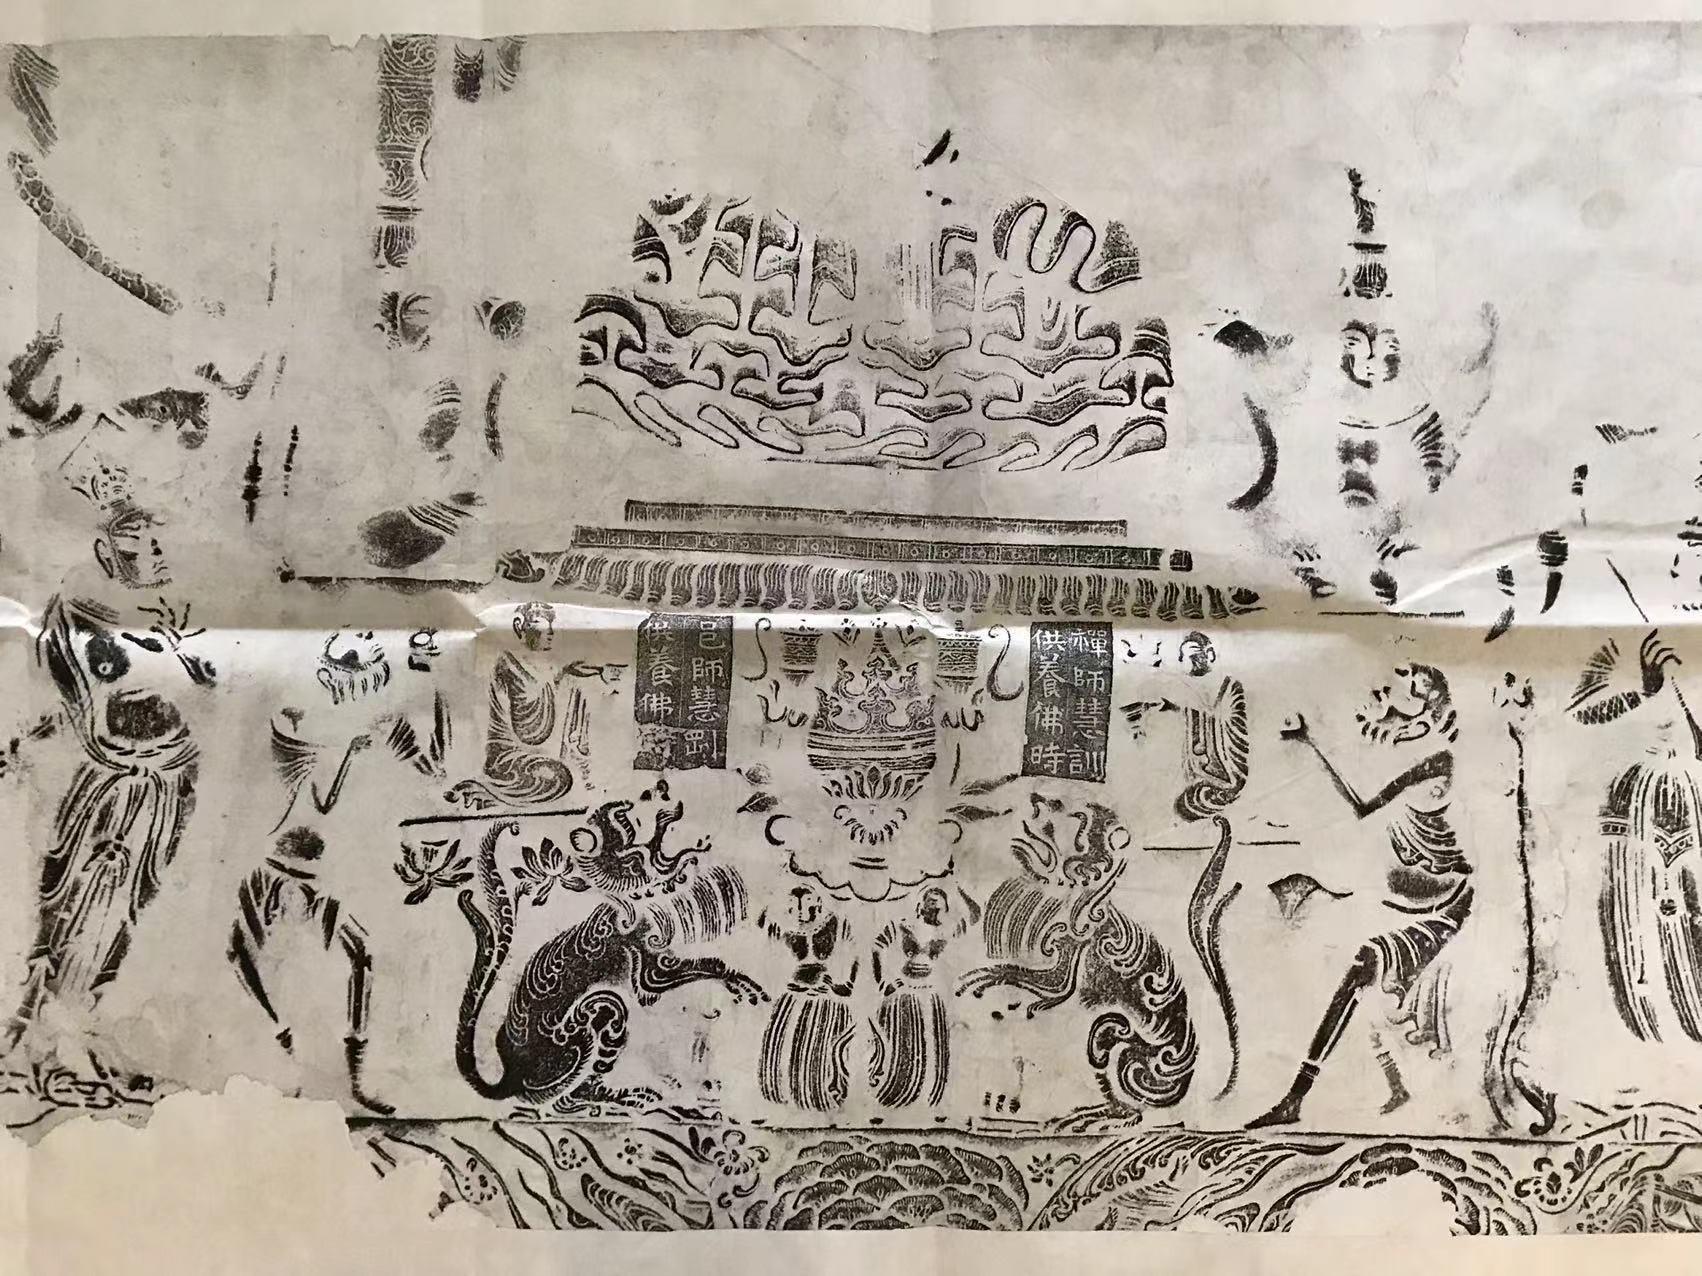 邑師慧剛
供養佛時
禪師慧訓
供養佛時